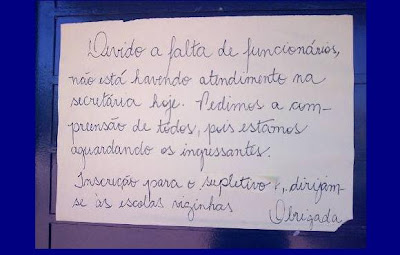 Devido a falta de funcionários,
não está havendo atendimento na
secretária hoje. Pedimos a com-
preensão de todos, pois estamos
aguardando os ingressantes.
Inscreção para o supletivo, dirijam-
se às escolas vizinhas
Obrigada